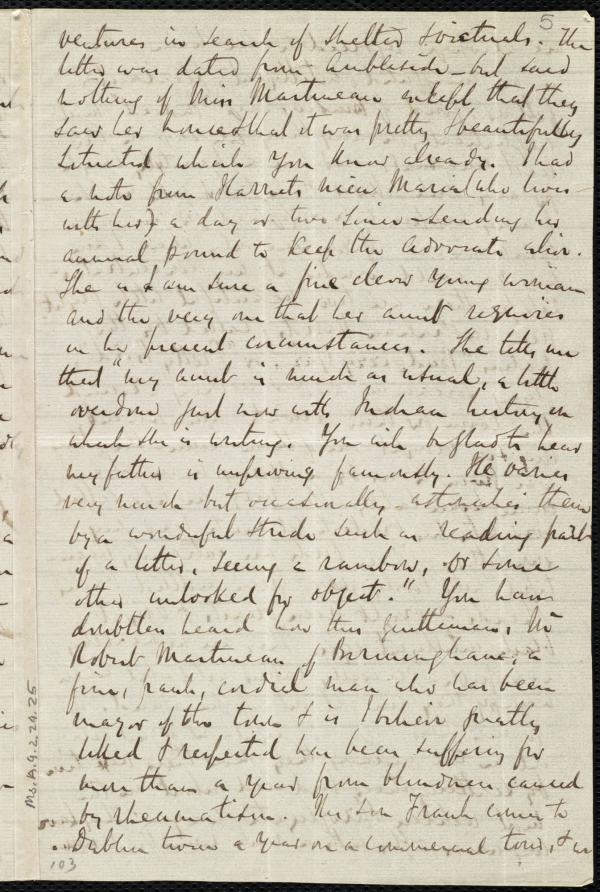 5
ventures in search of shelter & victuals. The
letter was dated from Ambleside - but said
nothing of Miss Martineau except that they
saw her house & that it was pretty & beautifully
situated which you know already. I had
a note from Harriet's niece Maria (who lives
with her) a day or two since - sending her
annual pound to keep the Advocate alive.
She is I am sure a fine clever young woman
and the very one that her aunt requires
in her present circumstances. She tells me
that "my aunt is much as usual, a little
overdone just now with Indian history, on
which she is writing. You will be glad to hear
my father is improving famously. He varies
very much but occasionally astonishes them
by a wonderful stride such as reading part
of a letter, seeing a rainbow, or some
other unlooked for object." You have
doubtless heard how this gentleman, Mr
Robert Martineau of Birmingham, a
fine, frank, cordial man who has been
mayor of the town & is I believe greatly
liked & respected has been suffering for
more than a year from blindness caused
by rheumatism. His son Frank comes to
Dublin twice a year on a commercial tour, &
Ms.A.9.2.29.25
103